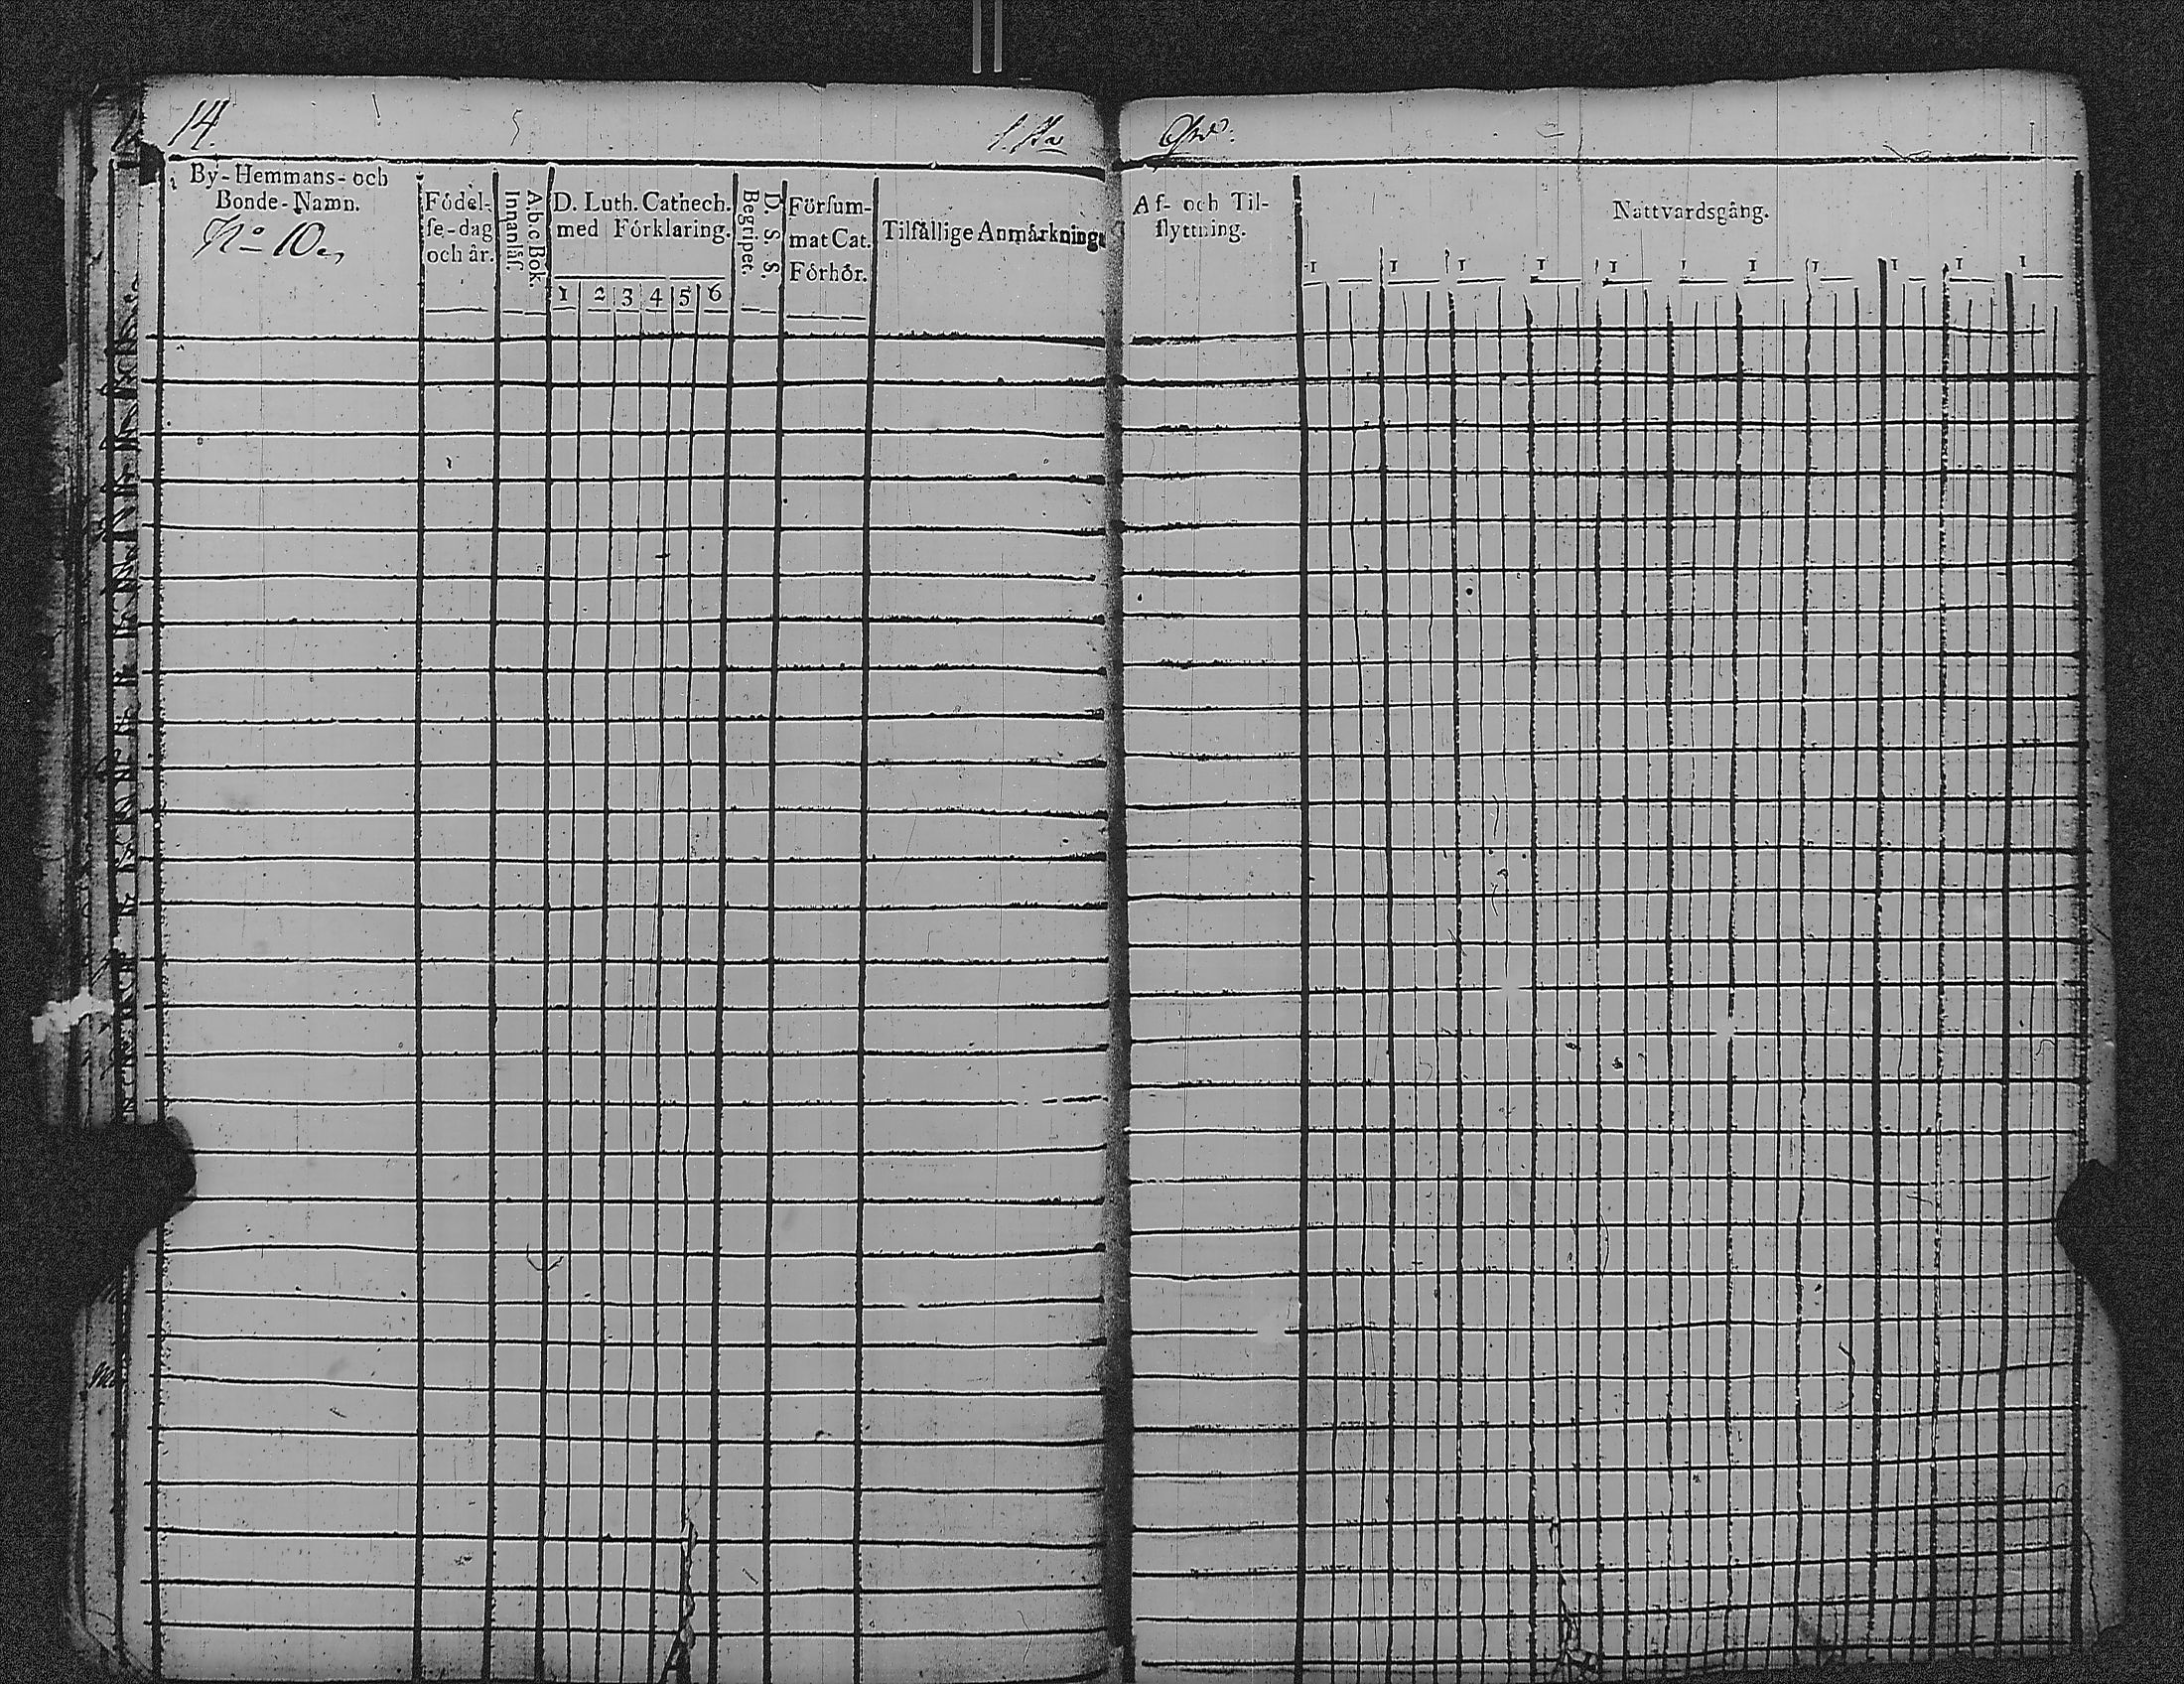 14.
By-Hemmans- och
Bonde-Namn.
No 10
Födel-
se-dag
och år.
A.b.c Bok.
Innanläs.
D. Luth. Cathech.
med Förklaring.
1 2 3 4 5 6
D. S. S.
Begripet.
Försum-
mat Cat.
Förhör.
Tilfällige Anmärkning
Af- och Til-
flyttning.
Nattvardsgång.
1 1 1 1 1 1 1 1 1 1 1